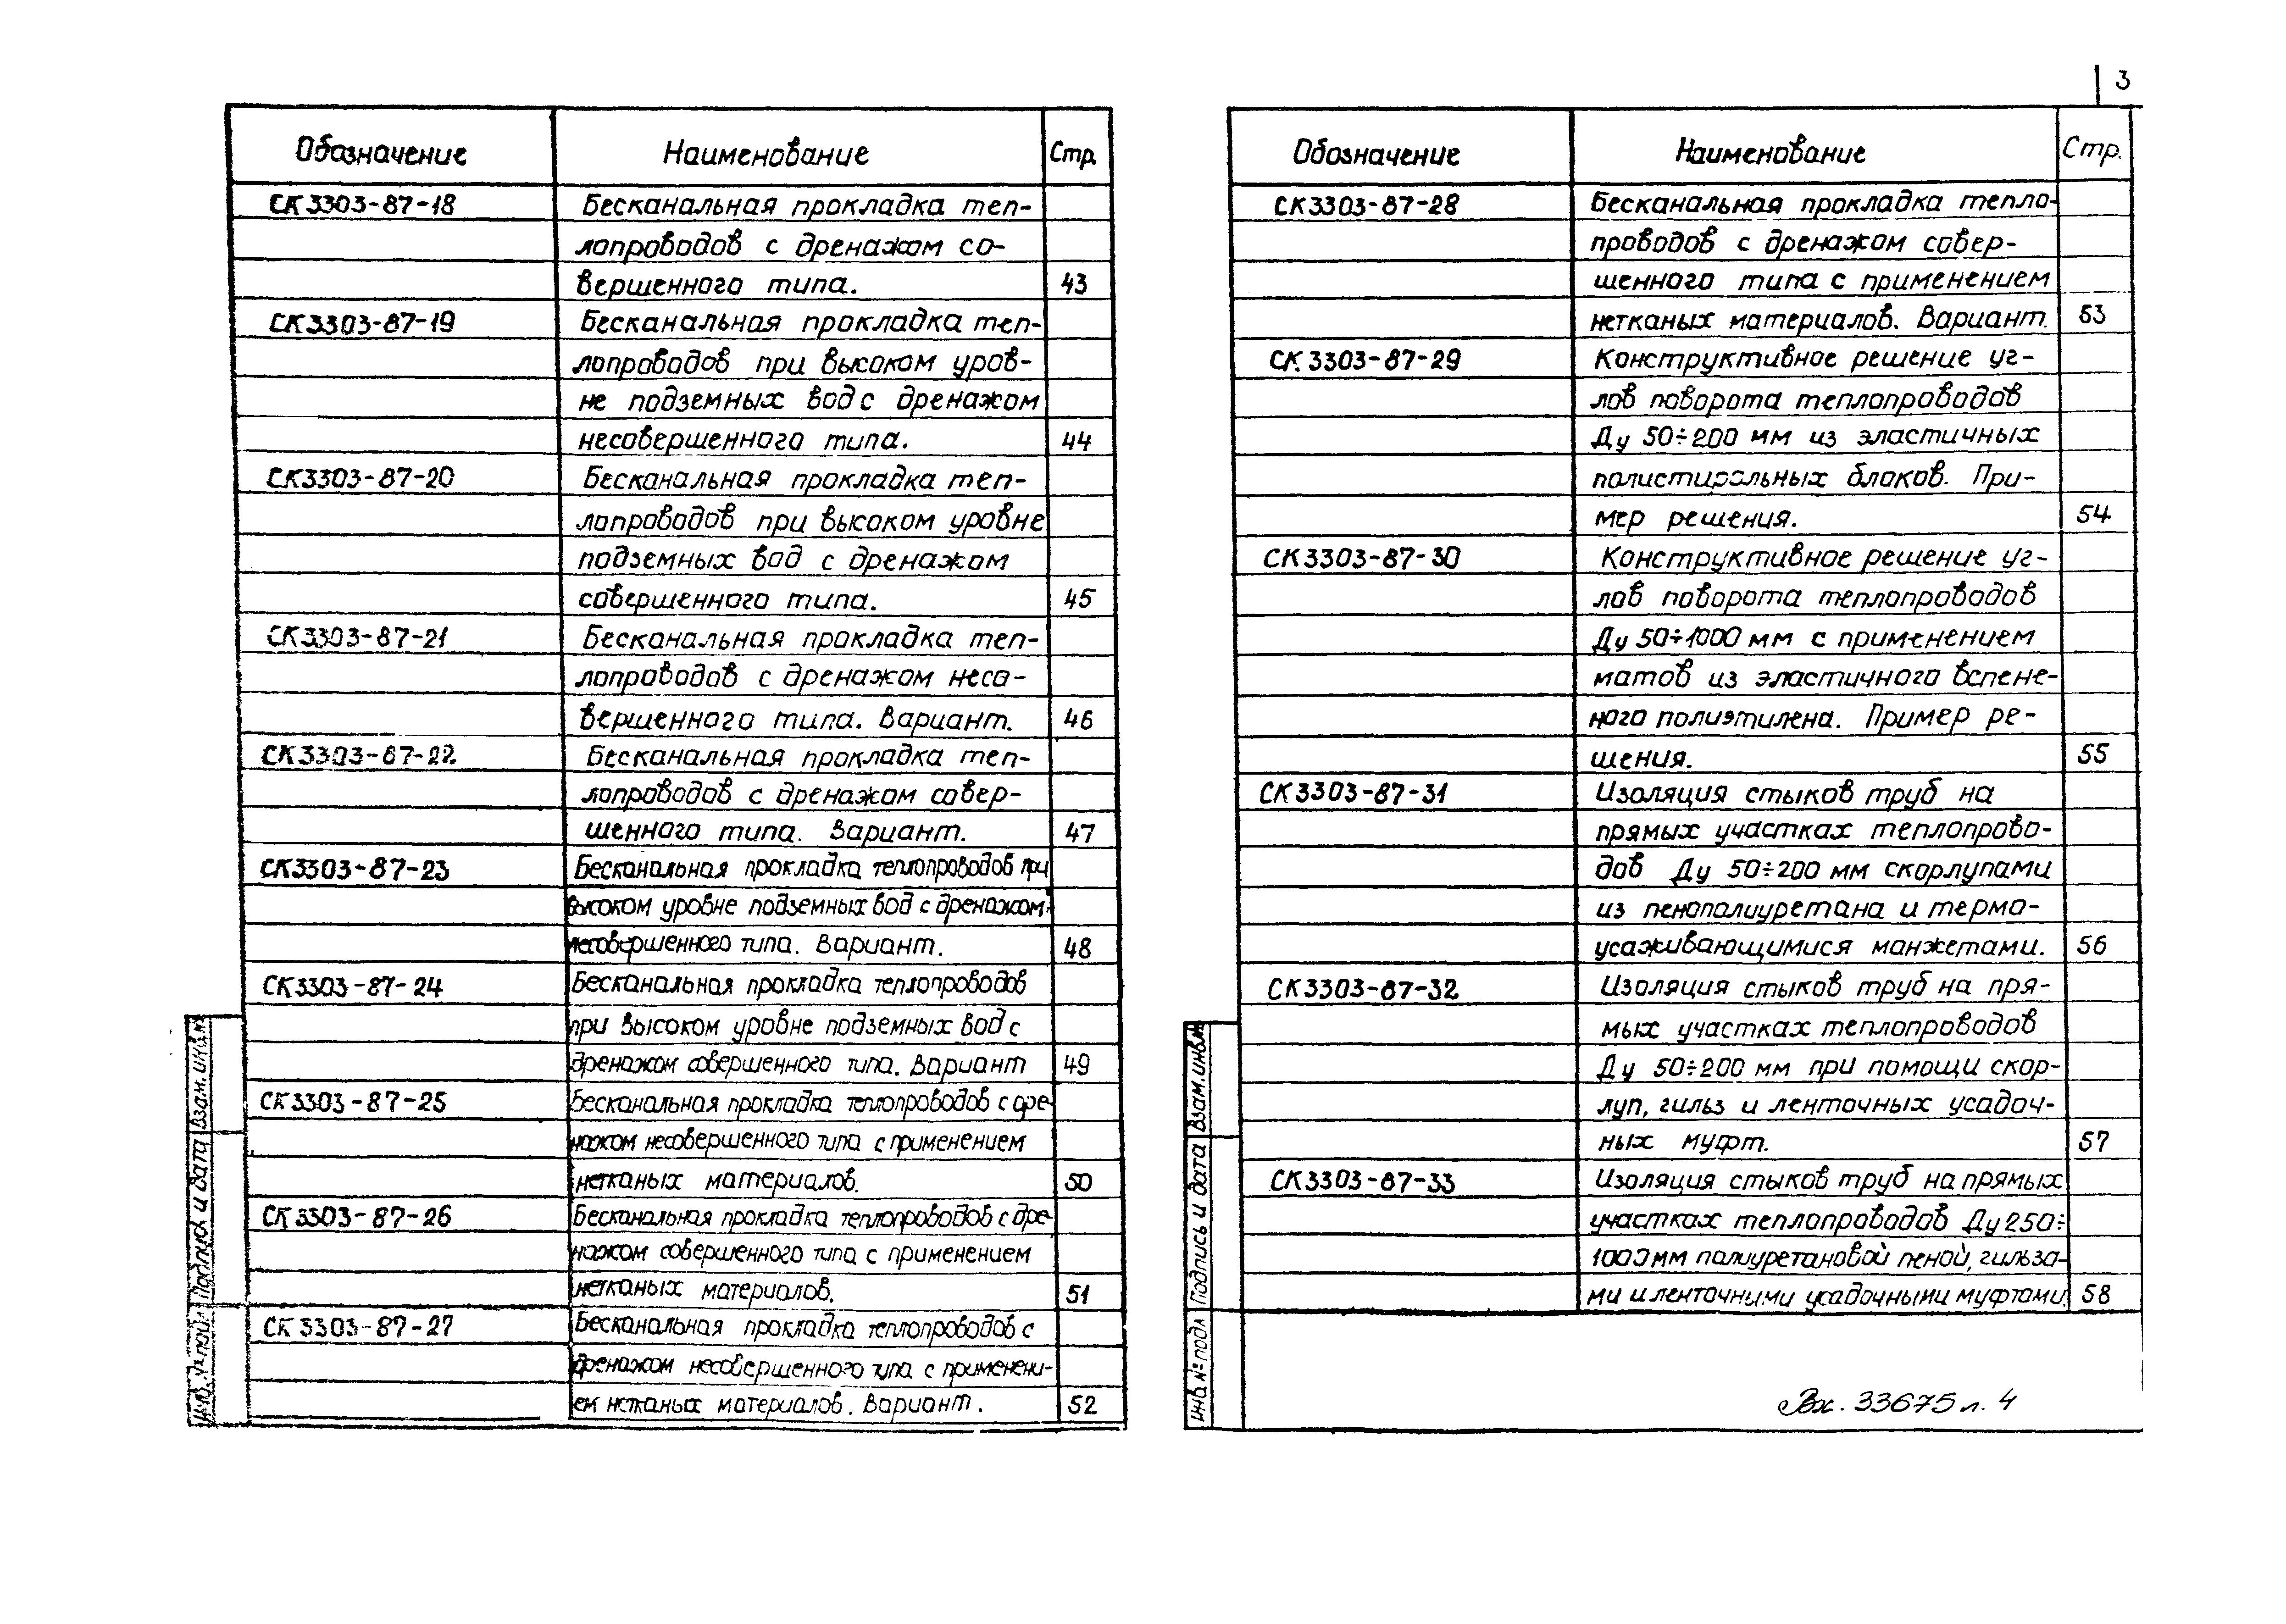 3
Обозначение Наименование Стр.
СК 3303-87-18 Бесканальная прокладка теп-
лопроводов с дренажом со-
вершенного типа. 43
СК 3303-87-19 Бесканальная прокладка теп-
лопроводов при высоком уров-
не подземных вод с дренажом
несовершенного типа. 44
СК3303-87-20 Бесканальная прокладка теп-
лопроводов при высоком уровне
подземных вод с дренажом
совершенного типа. 45
СК3303-87-21 Бесканальная прокладка теп-
лопроводов с дренажом несо-
вершенного типа. Вариант. 46
СК3303-87-22 Бесканальная прокладка теп-
лопроводов с дренажом совер-
шенного типа. Вариант. 47
СК3303-87-23 Бесканальная прокладка теплопроводов при
высоком уровне подземных вод с дренажом
несовершенного типа. Вариант. 48
СК3303-87-24 Бесканальная прокладка теплопроводов
при высоком уровне подземных вод с
дренажом совершенного типа. Вариант 49
СК3303-87-25 Бесканальная прокладка теплопроводов с дре-
нажом несовершенного типа с применением
нетканых материалов. 50
СК 3303-87-26 Бесканальная прокладка теплопроводов с дре-
нажом совершенного типа с применением
нетканых материалов. 51
СК 3303-87-27 Бесканальная прокладка теплопроводов с
дренажом несовершенного типа с применени-
ем нетканых материалов. Вариант. 52
Инв. № подл. Подпись и дата Взам. инв. №
Обозначение Наименование Стр.
СК3303-87-28 Бесканальная прокладка тепло-
проводов с дренажом совер-
шенного типа с применением
нетканых материалов. Вариант. 53
СК 3303-87-29 Конструктивное решение уг-
лов поворота теплопроводов
Ду 50÷200 мм из эластичных
полистирольных блоков. При-
мер решения. 54
СК3303-87-30 Конструктивное решение уг-
лов поворота теплопроводов
Ду 50÷1000 мм с применением
матов из эластичного вспене-
ного полиэтилена. Пример ре-
шения. 55
СК3303-87-31 Изоляция стыков труб на
прямых участках теплопрово-
дов Ду 50÷200 мм скорлупами
из пенополиуретана и термо-
усаживающимися манжетами. 56
СК3303-87-32 Изоляция стыков труб на пря-
мых участках теплопроводов
Ду 50÷200 мм при помощи скор-
луп, гильз и ленточных усадоч-
ных муфт. 57
СК3303-87-33 Изоляция стыков труб на прямых
участках теплопроводов Ду 250÷
1000 мм полиуретановой пеной, гильза-
ми и ленточными усадочными муфтами 58
Инв № подл Подпись и дата Взам. инв. №
Вх. 33675 л. 4